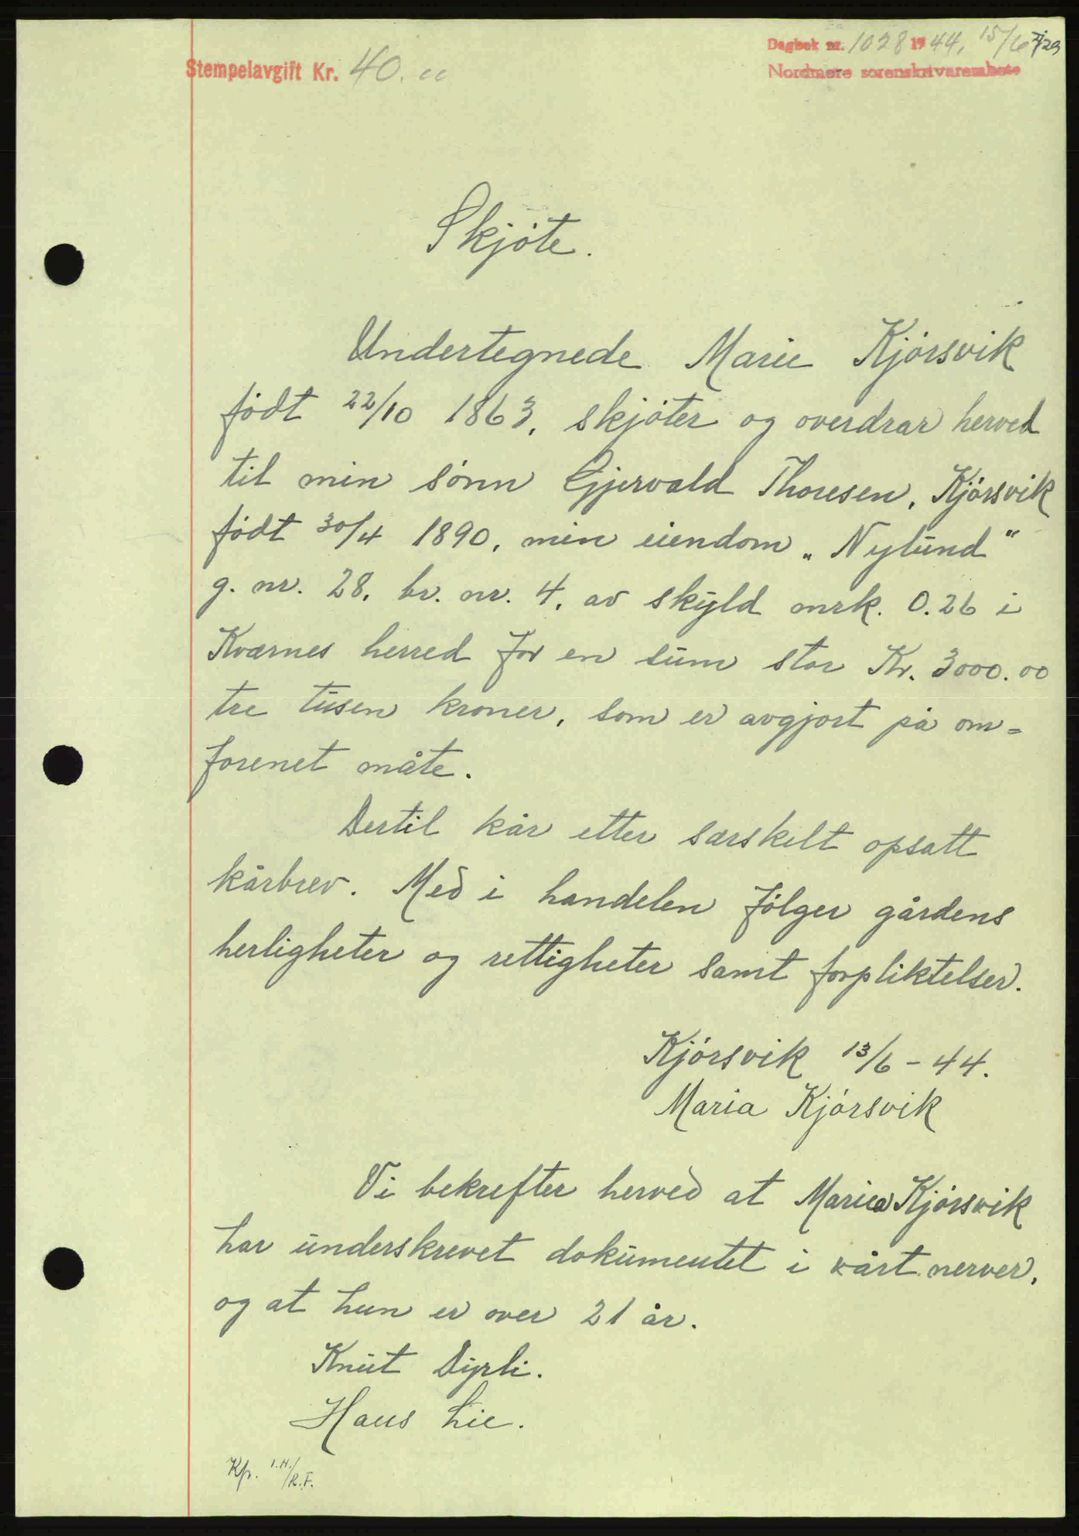 Stempelavgift Kr. 40.
Dagbok nr. 1028 1944, 15/6
Nordmøre sorenskriverembete
Skjöte.
Undertegnede Marie Kjörsvik
født 22/10 1863, skjöter og overdrar herved
til min sönn Gjervald Thoresen, Kjörsvik
født 30/4 1890, min eiendom „Nylund"
g. nr. 28, br. nr. 4, av skyld mrk. 0.26 i
Kvernes herred for en sum stor Kr. 3000.00
tre tusen kroner, som er avgjort på om=
forenet måte.
Dertil kår etter særskilt opsatt
kårbrev. Med i handelen fölger gårdens
herligheter og rettigheter samt forpliktelser.
Kjörsvik 13/6 - 44.
Maria Kjörsvik
Vi bekrefter herved at Maria Kjörsvik
har underskrevet dokumentet i vårt nerver,
og at hun er over 21 år.
Knut Dyrli.
Hans Lie.
Kp. I.H./R.F.